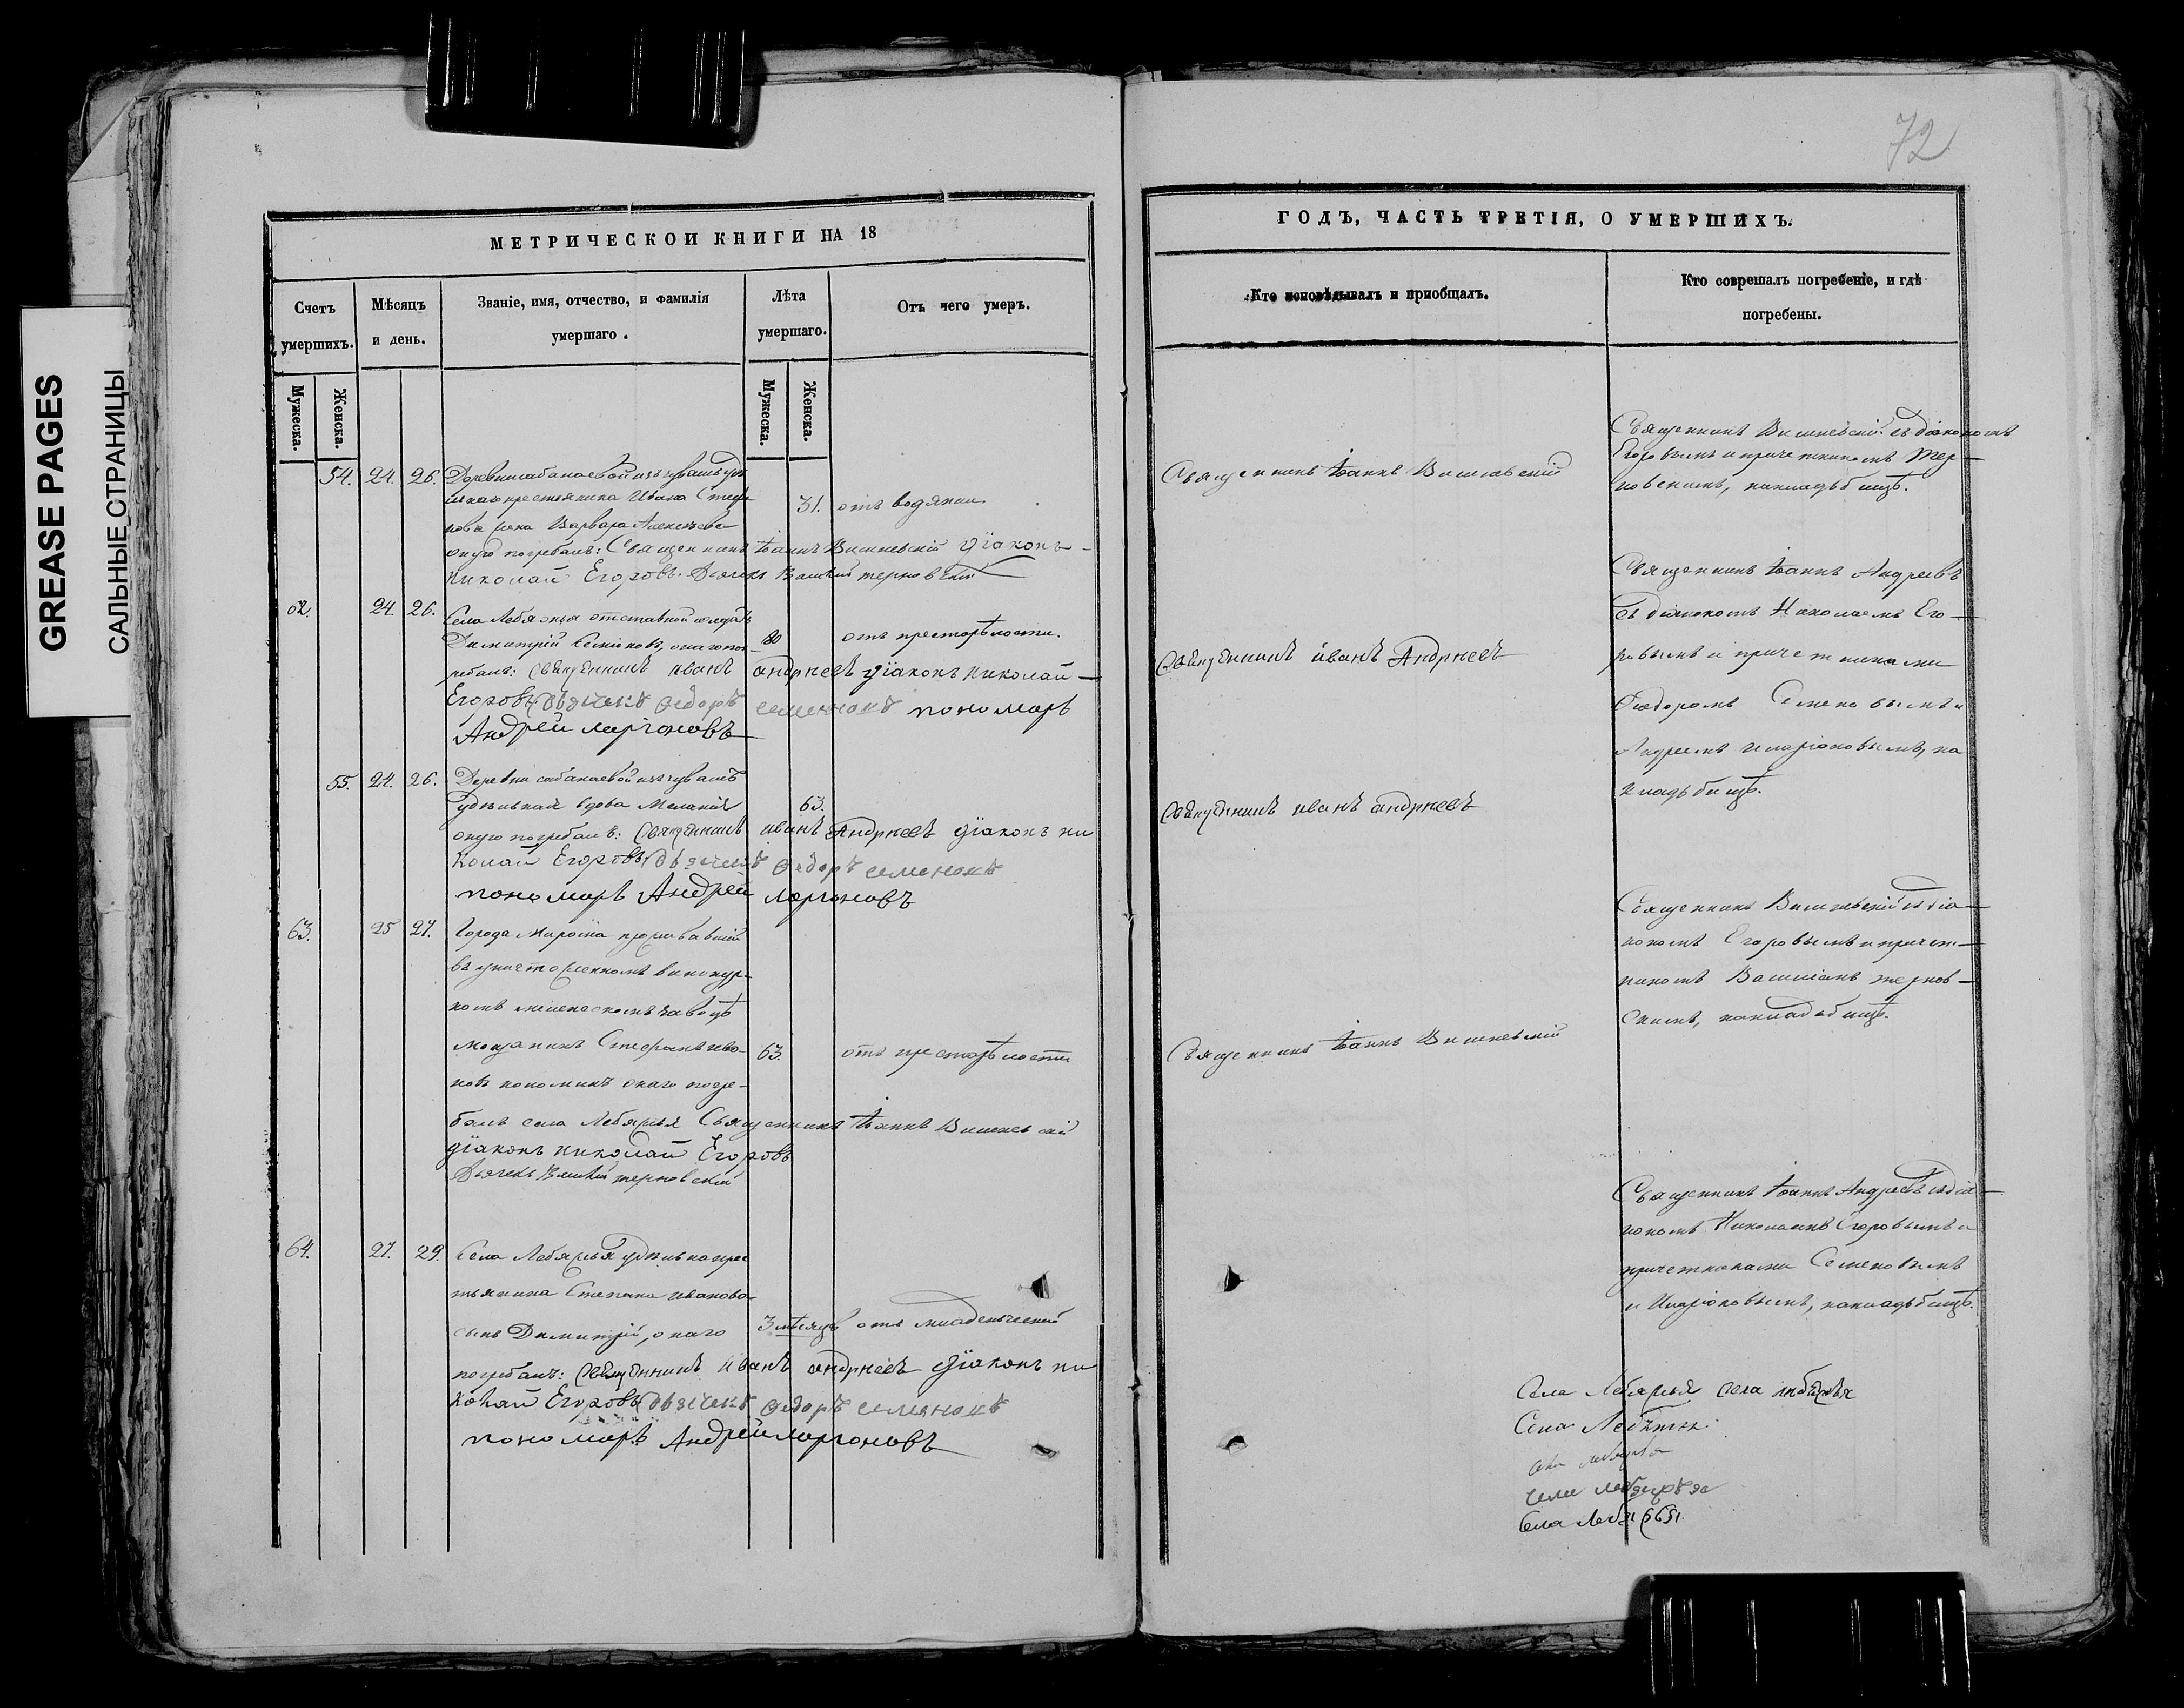 GREASE PAGES
САЛЬНЫЕ СТРАНИЦЫ
72
МЕТРИЧЕСКОЙ КНИГИ НА 18
Счетъ умершихъ.
Мѣсяцъ и день.
Званіе, имя, отчество, и фамилія умершаго.
Лѣта умершаго.
Отъ чего умеръ.
Мужеска.
Женска.
Мужеска.
Женска.
54. 24. 26. Деревни сабанаевой изъ чувашъ удѣ
льнаго крестьянина Ивана Стефа
нова жена Варвара Алексѣева
31. отъ водянки
оную погребалъ: Священникъ Іоаннъ Вишневскій діаконъ
Николай Егоровъ. Дьячекъ Василій терновскій
62. 24. 26. Села Лебяжья отставной солдатъ
Димитрій Семеновъ, онаго пог-
80 отъ престарѣлости.
ребалъ: свѣщенникъ иванъ андреевъ діаконъ николай
Егоровъ дьячекъ Федоръ семеновъ пономарь
Андрей ларіоновъ
55. 24. 26. Деревни сабанаевой изъ чувашъ
удѣльная вдова Меланія
63.
оную погребалъ: свѣщенникъ иванъ Андреевъ діаконъ ни
колай Егоровъ дьячекъ Федоръ семеновъ
пономарь Андрей ларіоновъ
63. 25 27. Города проживавшій
въ уничтоженномъ винокур-
номъ заводѣ
Стефанъ ива-
63. отъ престарѣлости
новъ онаго погре-
балъ села Лебяжья Священникъ Іоаннъ Вишневскій
діаконъ николай Егоровъ
Дьячекъ Василій терновскій
64. 27. 29. Села Лебяжья удѣльнаго крес
тьянина Степана иванова
сынъ Димитрій, онаго
3 мѣсяцъ отъ младенческой
погребалъ: свѣщенникъ Иванъ андреевъ діаконъ ни
колай Егоровъ дьячекъ Федоръ семеновъ
пономарь Андрей ларіоновъ
ГОДЪ, ЧАСТЬ ТРЕТІЯ, О УМЕРШИХЪ.
Кто исповѣдывалъ и пріобщалъ.
Кто совершалъ погребеніе, и гдѣ
погребены.
Священникъ Іоаннъ Вишневскій
Священникъ Вишневскій съ діакономъ
Егоровымъ и причетникомъ Тер-
новскимъ, на кладбищѣ.
свѣщенникъ иванъ Андреевъ
Священникъ Іоаннъ Андреевъ
съ діакономъ Николаемъ Его-
ровымъ и причетниками
Феодоромъ Семеновымъ и
Андреемъ иларіоновымъ, на
кладбищѣ.
свѣщенникъ иванъ андреевъ
Священникъ Іоаннъ Вишневскій
Священникъ Вишневскій съ діа-
кономъ Егоровымъ и причет-
никомъ Василіемъ тернов-
скимъ, на кладбищѣ.
Священникъ Іоаннъ Андреевъ съ діа-
кономъ Николаемъ Егоровымъ и
причетниками Семеновымъ
и Иларіоновымъ, на кладбищѣ.
Села Лебяжья села лебяжья
Села
села
села
Села